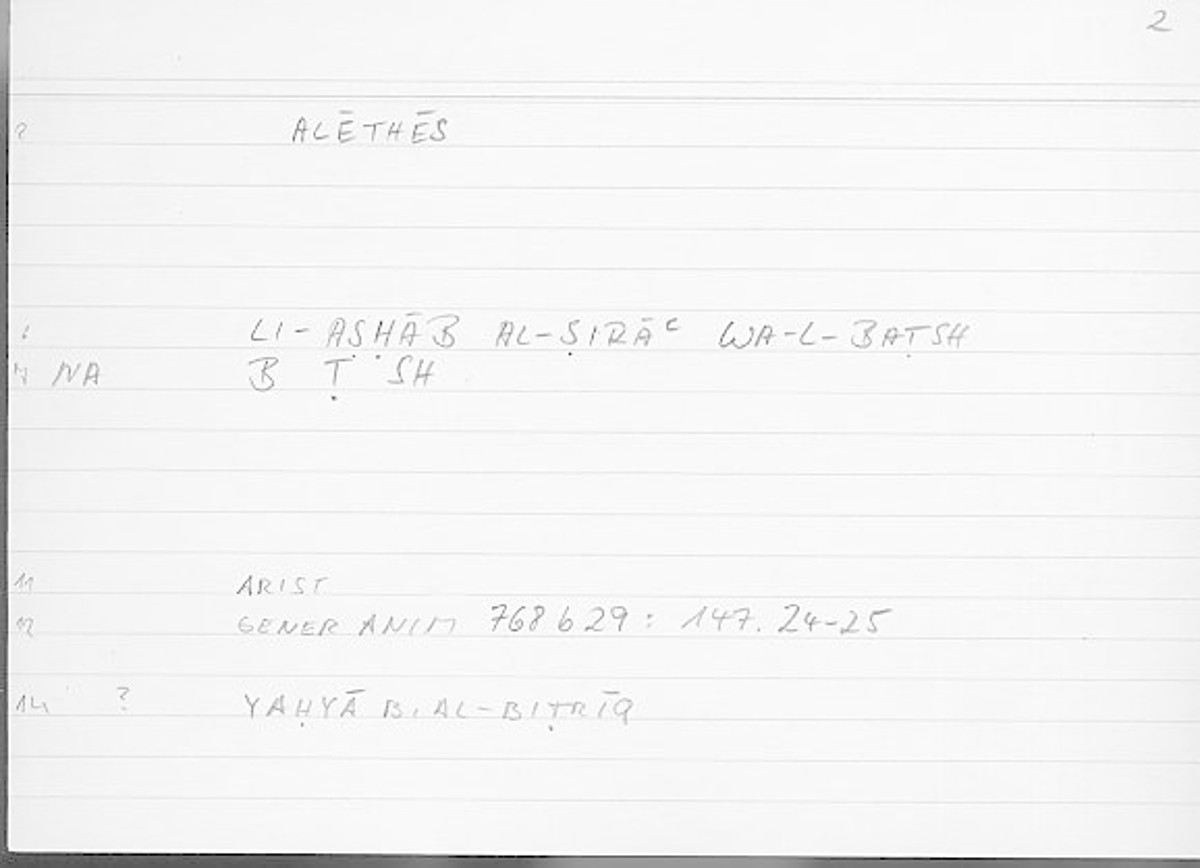 2
2 ALĒTHĒS
6 LI-AṢḤĀB AL-ṢIRĀʿ WA-L-BAṬSH
7 NA B Ṭ SH
11 ARIST
12 GENER ANIM 768 b 29 : 147. 24-25
14 ? YAḤYĀ B. AL-BIṬRĪQ